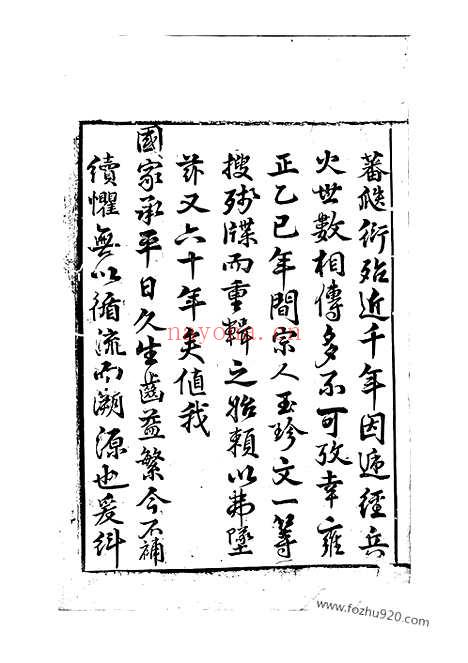 蕃殖衍殆近千年因遞經兵
火世數相傳多不可攷幸雍
正乙巳年間宗人玉珍文一等
搜殘牒而重輯之始賴以弗墜
茲又六十年矣值我
國家承平日久生齒益繁今不補
續懼無以循流而溯源也爰糾
nayona.cn
www.fozhu920.com